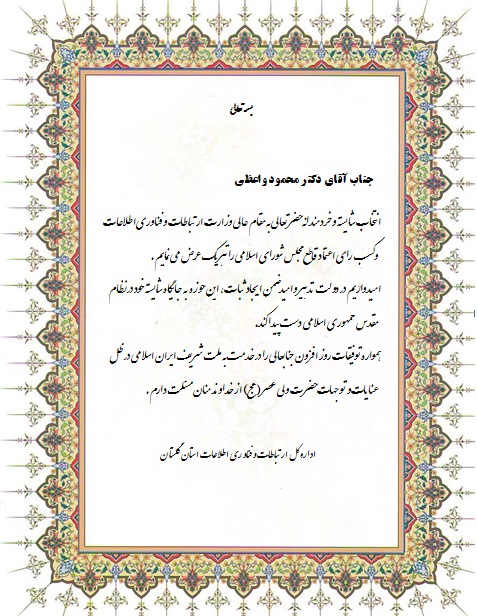 بسمه تعالی
جناب آقای دکتر محمود واعظی
انتخاب شایسته و خردمندانه حضرتعالی به مقام عالی وزارت ارتباطات و فناوری اطلاعات
و کسب رای اعتماد قاطع مجلس شورای اسلامی را تبریک عرض می نمایم .
امیدواریم در دولت تدبیر و امید ضمن ایجاد ثبات، این حوزه به جایگاه شایسته خود در نظام
مقدس جمهوری اسلامی دست پیدا کند.
همواره توفیقات روز افزون جنابعالی را در خدمت به ملت شریف ایران اسلامی در ظل
عنایات و توجهات حضرت ولی عصر (عج) از خداوند منان مسئلت دارم .
اداره کل ارتباطات و فناوری اطلاعات استان گلستان